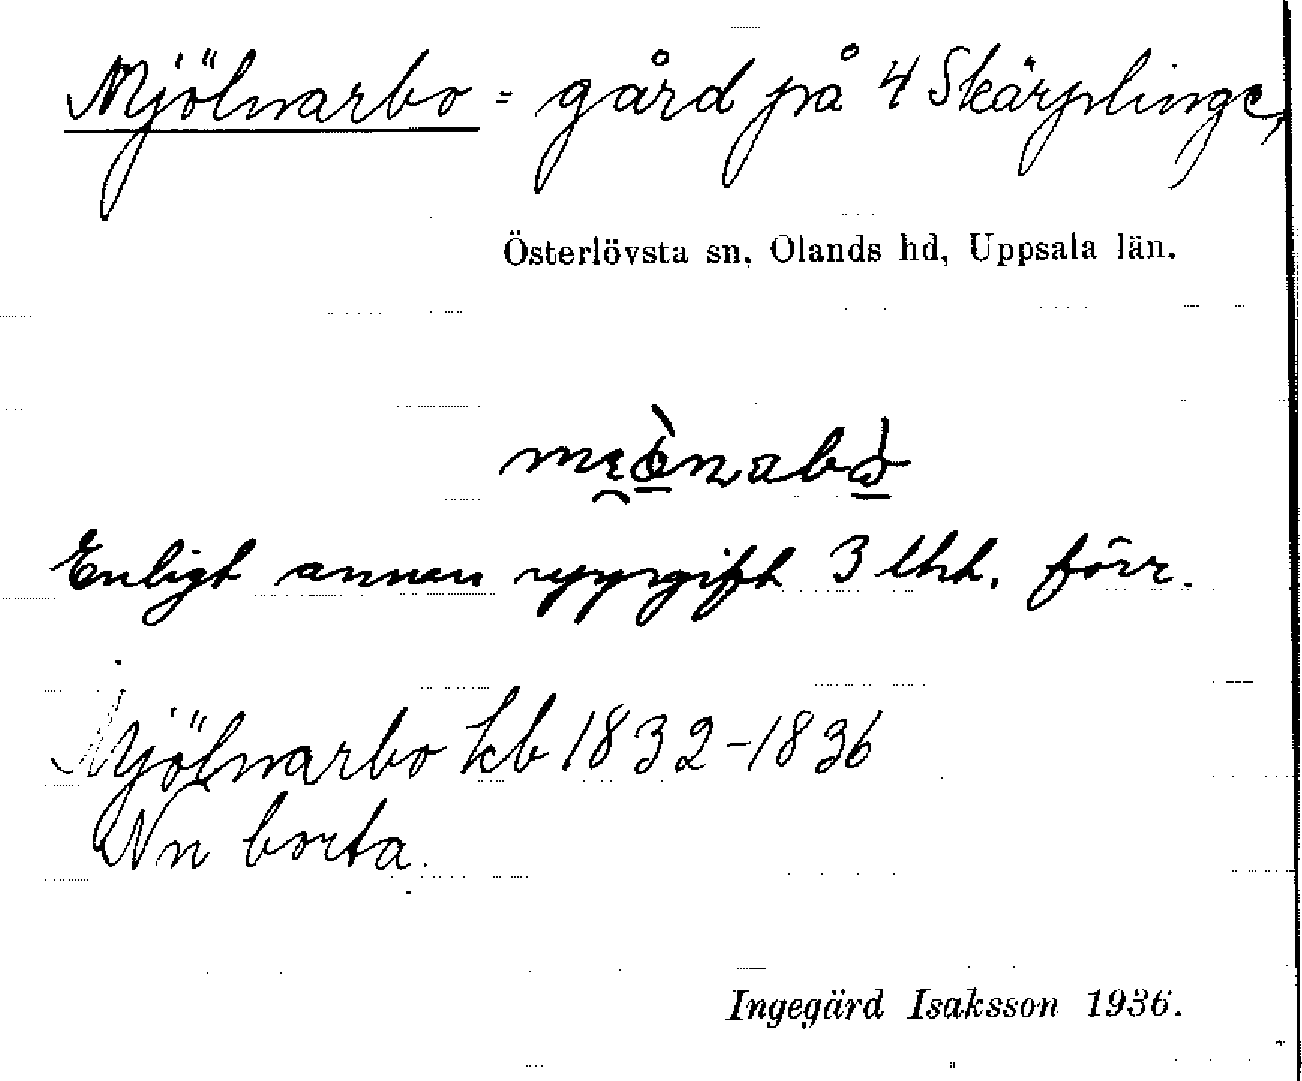 Mjölnarbo = gård på 4 Skärplinge,
Österlövsta sn, Olands hd, Uppsala län.
Enligt annan uppgift 3 lht. förr.
Mjölnarbo kb 1832-1836
Nn borta.
Ingegärd Isaksson 1936.